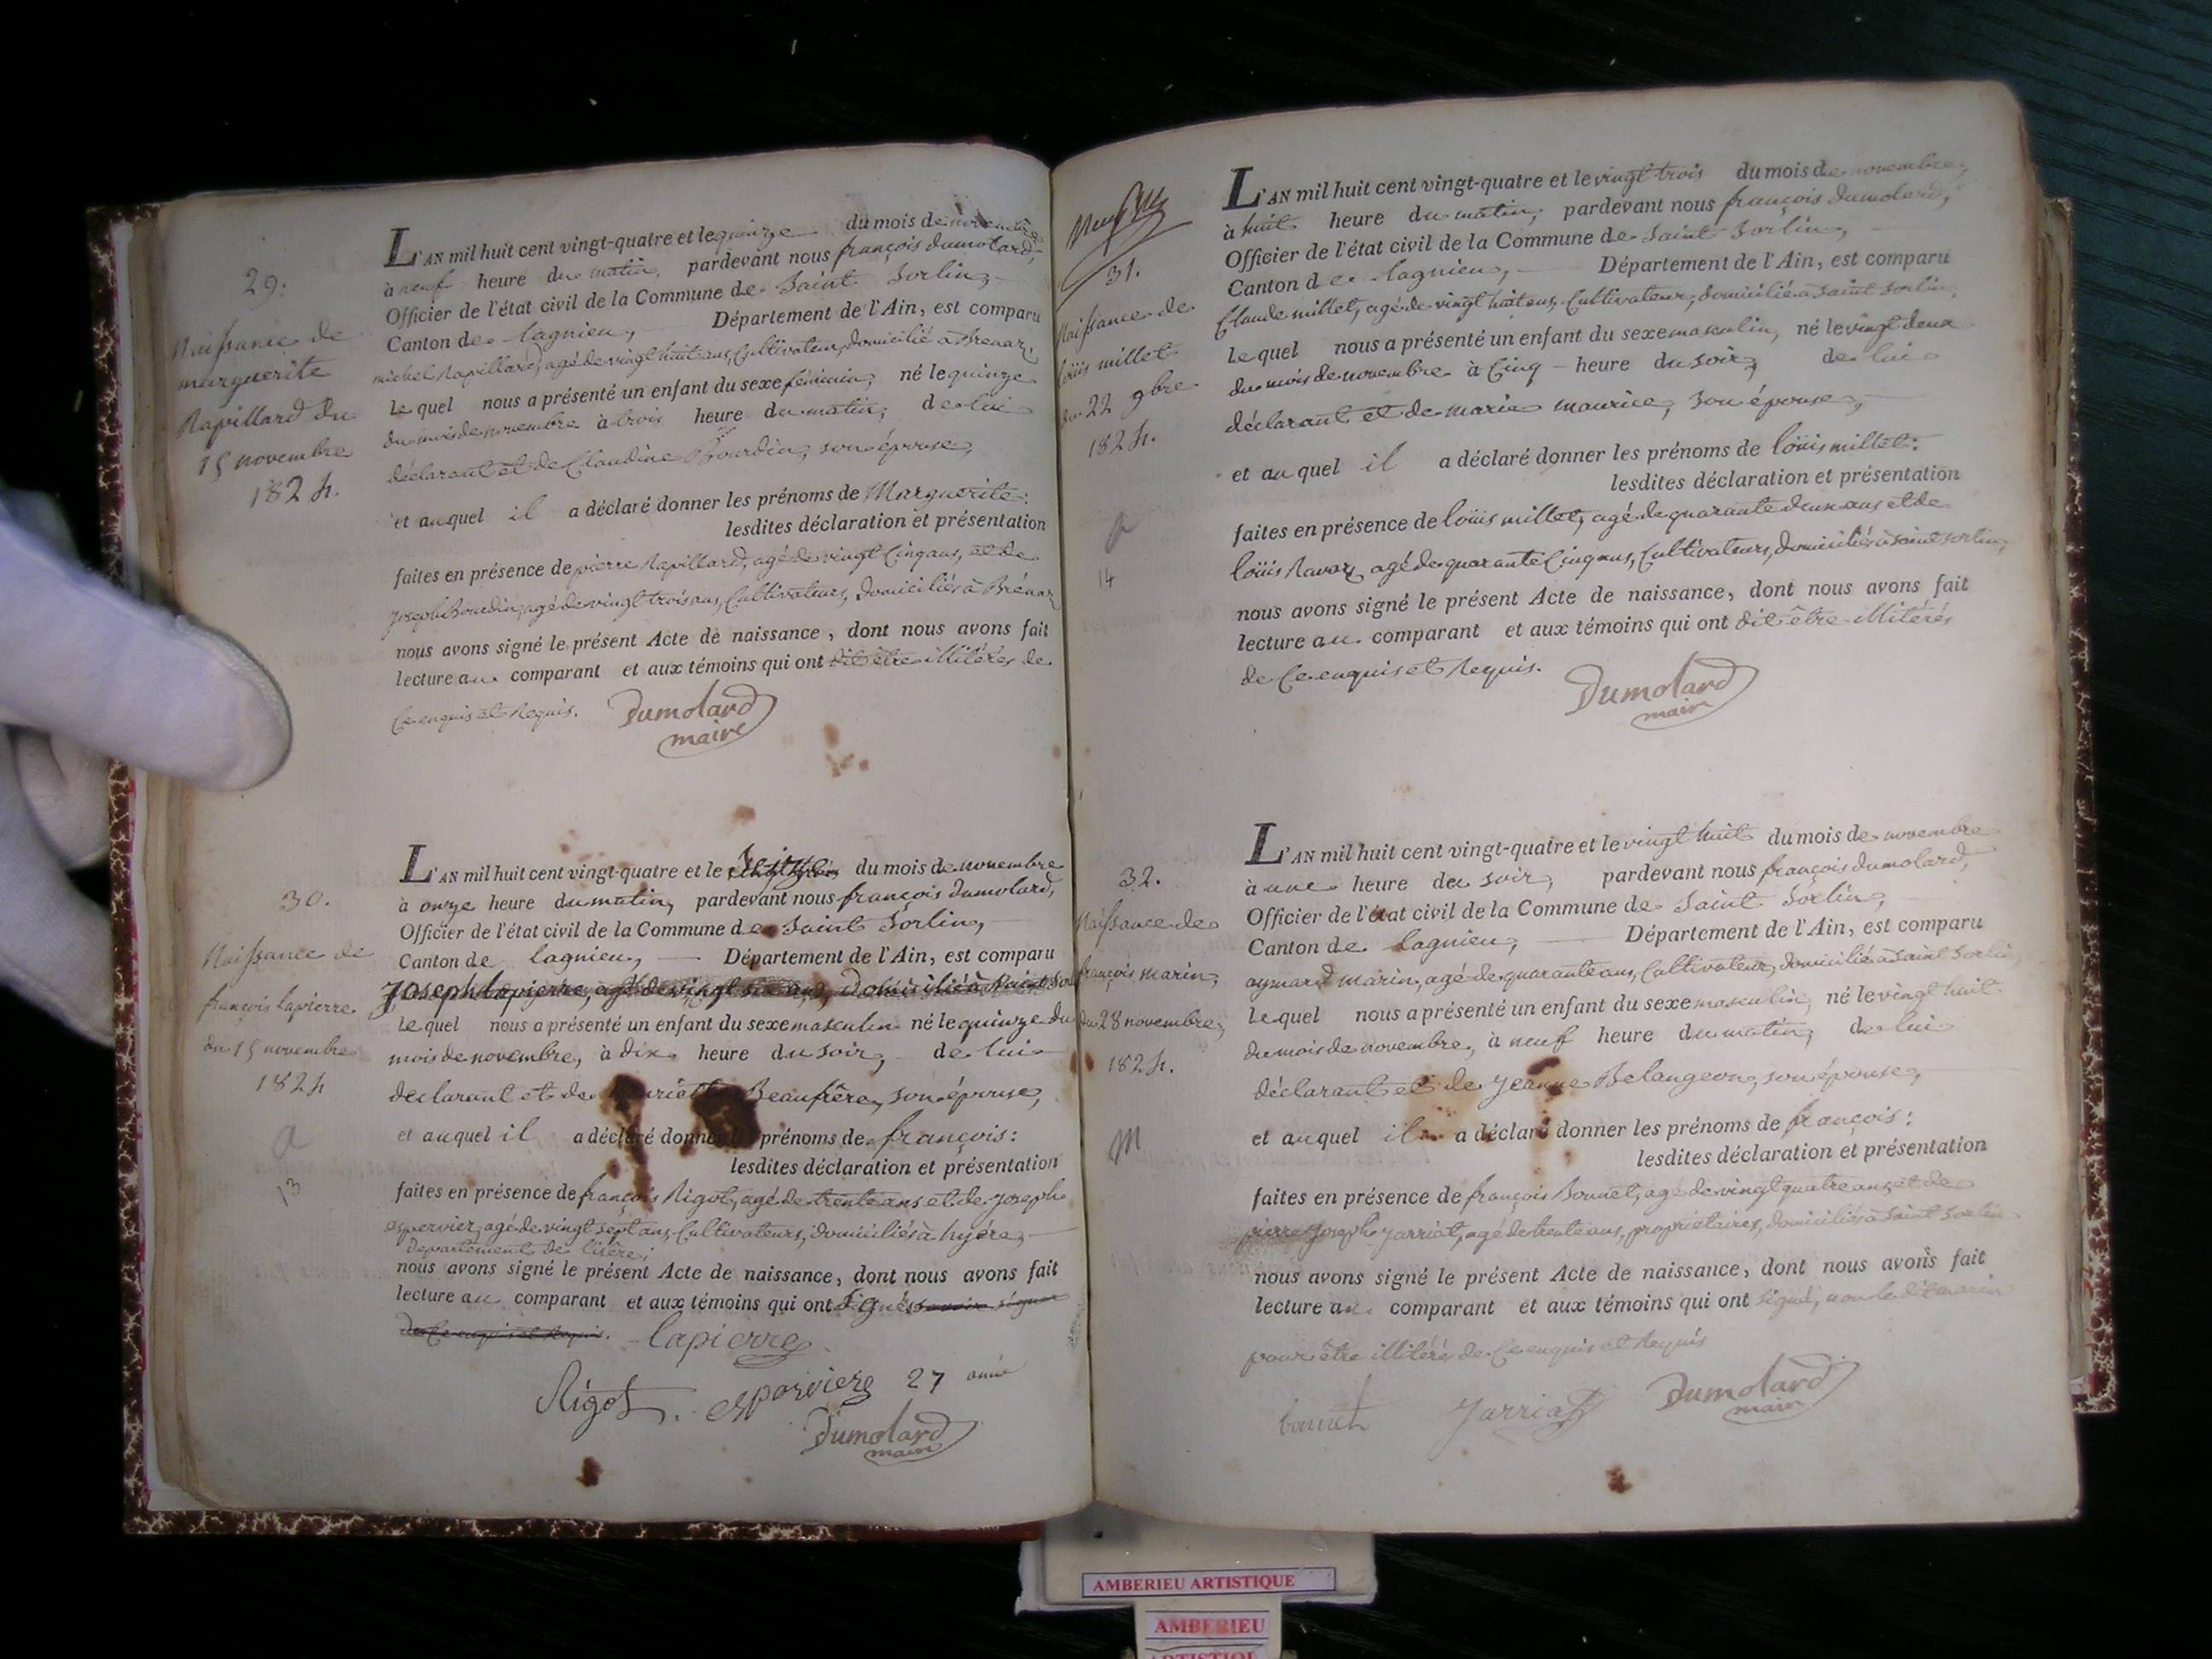 29.
Naissance de
marguerite
Rapillard du
15 novembre
1824.
L'AN mil huit cent vingt-quatre et le quinze du mois de novembre
à neuf heure du matin, pardevant nous françois dumolard,
Officier de l'état civil de la Commune de Saint Sorlin,
Canton de lagnieu, Département de l'Ain, est comparu
michel Rapillard, agé de vingt huit ans, Cultivateur, domicilié à Brenaz,
lequel nous a présenté un enfant du sexe féminin, né le quinze
du mois de novembre à trois heure du matin, de lui
déclarant et de Claudine Bourdin, son épouse,
et auquel il a déclaré donner les prénoms de Marguerite:
lesdites déclaration et présentation
faites en présence de pierre Rapillard, agé de vingt Cinq ans, et de
joseph Bourdin, agé de vingt trois ans, Cultivateurs, domiciliés à Brénaz
nous avons signé le présent Acte de naissance, dont nous avons fait
lecture au comparant et aux témoins qui ont dit être illitérés de
Ce enquis et Requis. Dumolard
maire
30.
Naissance de
françois lapierre
du 15 novembre
1824
a
13
L'AN mil huit cent vingt-quatre et le du mois de novembre
à onze heure du matin, pardevant nous françois dumolard,
Officier de l'état civil de la Commune de Saint Sorlin,
Canton de lagnieu, Département de l'Ain, est comparu
Joseph lapierre, agé de vingt six ans, domicilié à Saint Sor
lequel nous a présenté un enfant du sexe masculin né le quinze du
mois de novembre, à dix heure du soir, de lui
declarant et de Beaufrère, son épouse,
et auquel il a déclaré donner les prénoms de françois:
lesdites déclaration et présentation
faites en présence de françois Rigot, agé de trente ans et de joseph
espervier, agé de vingt sept ans, Cultivateurs, domiciliés à hyére,
departement de lisère,
nous avons signé le présent Acte de naissance, dont nous avons fait
lecture au comparant et aux témoins qui ont signés savoir signer
de Ce enquis et Requis. lapierre
Rigot. esporviere 27
Dumolard
maire
31.
Naissance de
loüis millet
du 22 9bre
1824.
a
14
L'AN mil huit cent vingt-quatre et le vingt trois du mois de novembre,
à huit heure du matin, pardevant nous françois dumolard,
Officier de l'état civil de la Commune de Saint Sorlin,
Canton de lagnieu, Département de l'Ain, est comparu
Claude millet, agé de vingt huit ans, Cultivateur, domicilié à Saint Sorlin,
lequel nous a présenté un enfant du sexe masculin, né le vingt deux
du mois de novembre à Cinq heure du soir, de lui
déclarant et de marie maurice, son épouse,
et auquel il a déclaré donner les prénoms de loüis millet:
lesdites déclaration et présentation
faites en présence de loüis millet, agé de quarante deux ans et de
loüis Ravaz agé de quarante Cinq ans, Cultivateurs, domiciliés à Saint Sorlin,
nous avons signé le présent Acte de naissance, dont nous avons fait
lecture au comparant et aux témoins qui ont dit être illitérés
de Ce enquis et Requis.
Dumolard
maire
32.
Naissance de
françois marin,
du 28 novembre,
1824.
M
L'AN mil huit cent vingt-quatre et le vingt huit du mois de novembre
à une heure du soir, pardevant nous françois dumolard,
Officier de l'état civil de la Commune de Saint Sorlin,
Canton de lagnieu, Département de l'Ain, est comparu
aymard marin, agé de quarante ans, Cultivateur, domicilié à Saint Sorlin,
lequel nous a présenté un enfant du sexe masculin, né le vingt huit
du mois de novembre, à neuf heure du matin, de lui
déclarant et de Jeanne Belangeon, son épouse,
et auquel il a déclaré donner les prénoms de françois:
lesdites déclaration et présentation
faites en présence de françois Bonnet, agé de vingt quatre ans, et de
pierre Joseph Jarriat, agé de trente ans, proprietaires, domiciliés à Saint Sorlin
nous avons signé le présent Acte de naissance, dont nous avons fait
lecture au comparant et aux témoins qui ont signé, non le dit marin
pour être illitéré de Ce enquis et Requis
bonnet Jarriat Dumolard
maire
AMBERIEU ARTISTIQUE
AMBERIEU
ARTISTIQUE